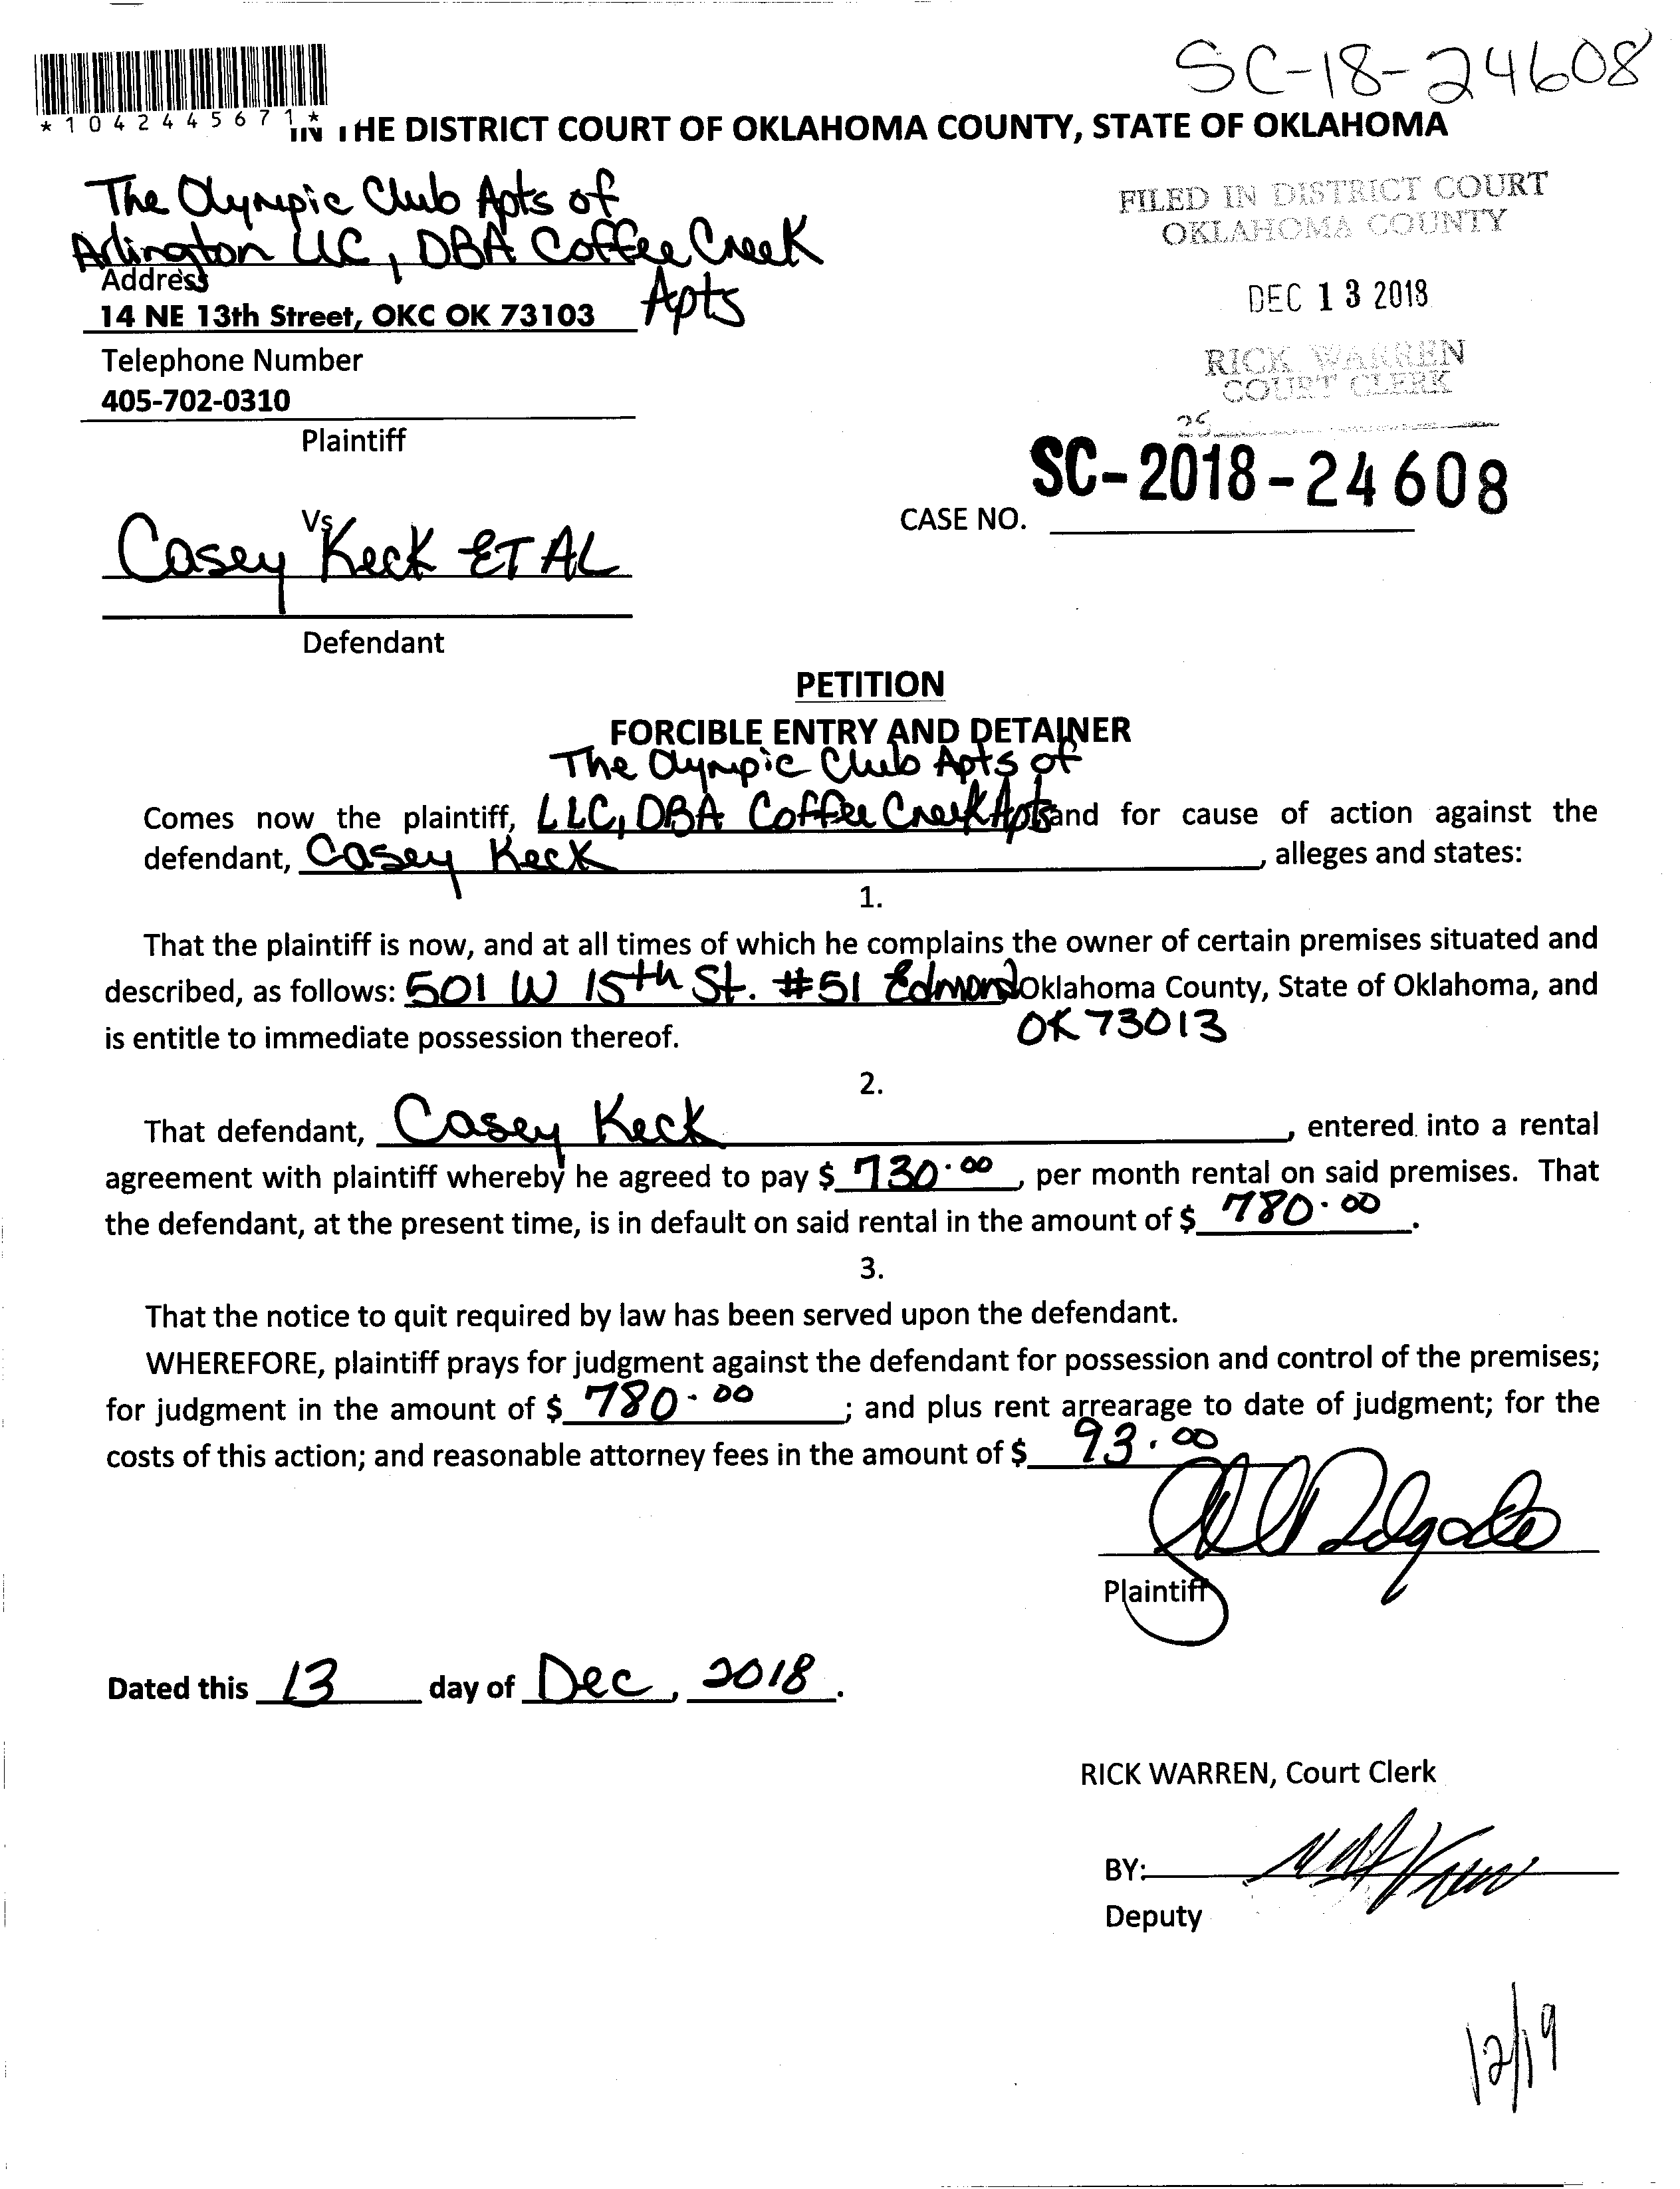 SC-18-24608
*1042445671*
IN THE DISTRICT COURT OF OKLAHOMA COUNTY, STATE OF OKLAHOMA
The Olympic Club Apts of
Arlington LLC, DBA Coffee Creek
Apts
Address
14 NE 13th Street, OKC OK 73103
Telephone Number
405-702-0310
Plaintiff
FILED IN DISTRICT COURT
OKLAHOMA COUNTY
DEC 13 2018
RICK WARREN
COURT CLERK
CASE NO. SC-2018-24608
Vs
Casey Keck ET AL
Defendant
PETITION
FORCIBLE ENTRY AND DETAINER
The Olympic Club Apts of
Comes now the plaintiff, LLC, DBA Coffee Creek Apts and for cause of action against the
defendant, Casey Keck, alleges and states:
1.
That the plaintiff is now, and at all times of which he complains the owner of certain premises situated and
described, as follows: 501 W 15th St. #51 Edmond Oklahoma County, State of Oklahoma, and
OK 73013
is entitle to immediate possession thereof.
2.
That defendant, Casey Keck, entered into a rental
agreement with plaintiff whereby he agreed to pay $ 730.00, per month rental on said premises. That
the defendant, at the present time, is in default on said rental in the amount of $ 780.00.
3.
That the notice to quit required by law has been served upon the defendant.
WHEREFORE, plaintiff prays for judgment against the defendant for possession and control of the premises;
for judgment in the amount of $ 780.00; and plus rent arrearage to date of judgment; for the
costs of this action; and reasonable attorney fees in the amount of $ 93.00
Plaintiff
Dated this 13 day of Dec, 2018.
RICK WARREN, Court Clerk
BY:
Deputy
12/19